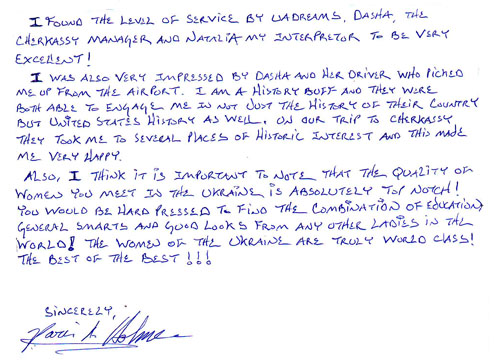 I FOUND THE LEVEL OF SERVICE BY UADREAMS, DASHA, THE
CHERKASSY MANAGER AND NATALIA MY INTERPRETOR TO BE VERY
EXCELLENT!
I WAS ALSO VERY IMPRESSED BY DASHA AND HER DRIVER WHO PICKED
ME UP FROM THE AIRPORT. I AM A HISTORY BUFF AND THEY WERE
BOTH ABLE TO ENGAGE ME IN NOT JUST THE HISTORY OF THEIR COUNTRY
BUT UNITED STATES HISTORY AS WELL. ON OUR TRIP TO CHERKASSY
THEY TOOK ME TO SEVERAL PLACES OF HISTORIC INTEREST AND THIS MADE
ME VERY HAPPY.
ALSO, I THINK IT IS IMPORTANT TO NOTE THAT THE QUALITY OF
WOMEN YOU MEET IN THE UKRAINE IS ABSOLUTELY TOP NOTCH!
YOU WOULD BE HARD PRESSED TO FIND THE COMBINATION OF EDUCATION,
GENERAL SMARTS AND GOOD LOOKS FROM ANY OTHER LADIES IN THE
WORLD! THE WOMEN OF THE UKRAINE ARE TRULY WORLD CLASS!
THE BEST OF THE BEST!!!
SINCERELY,